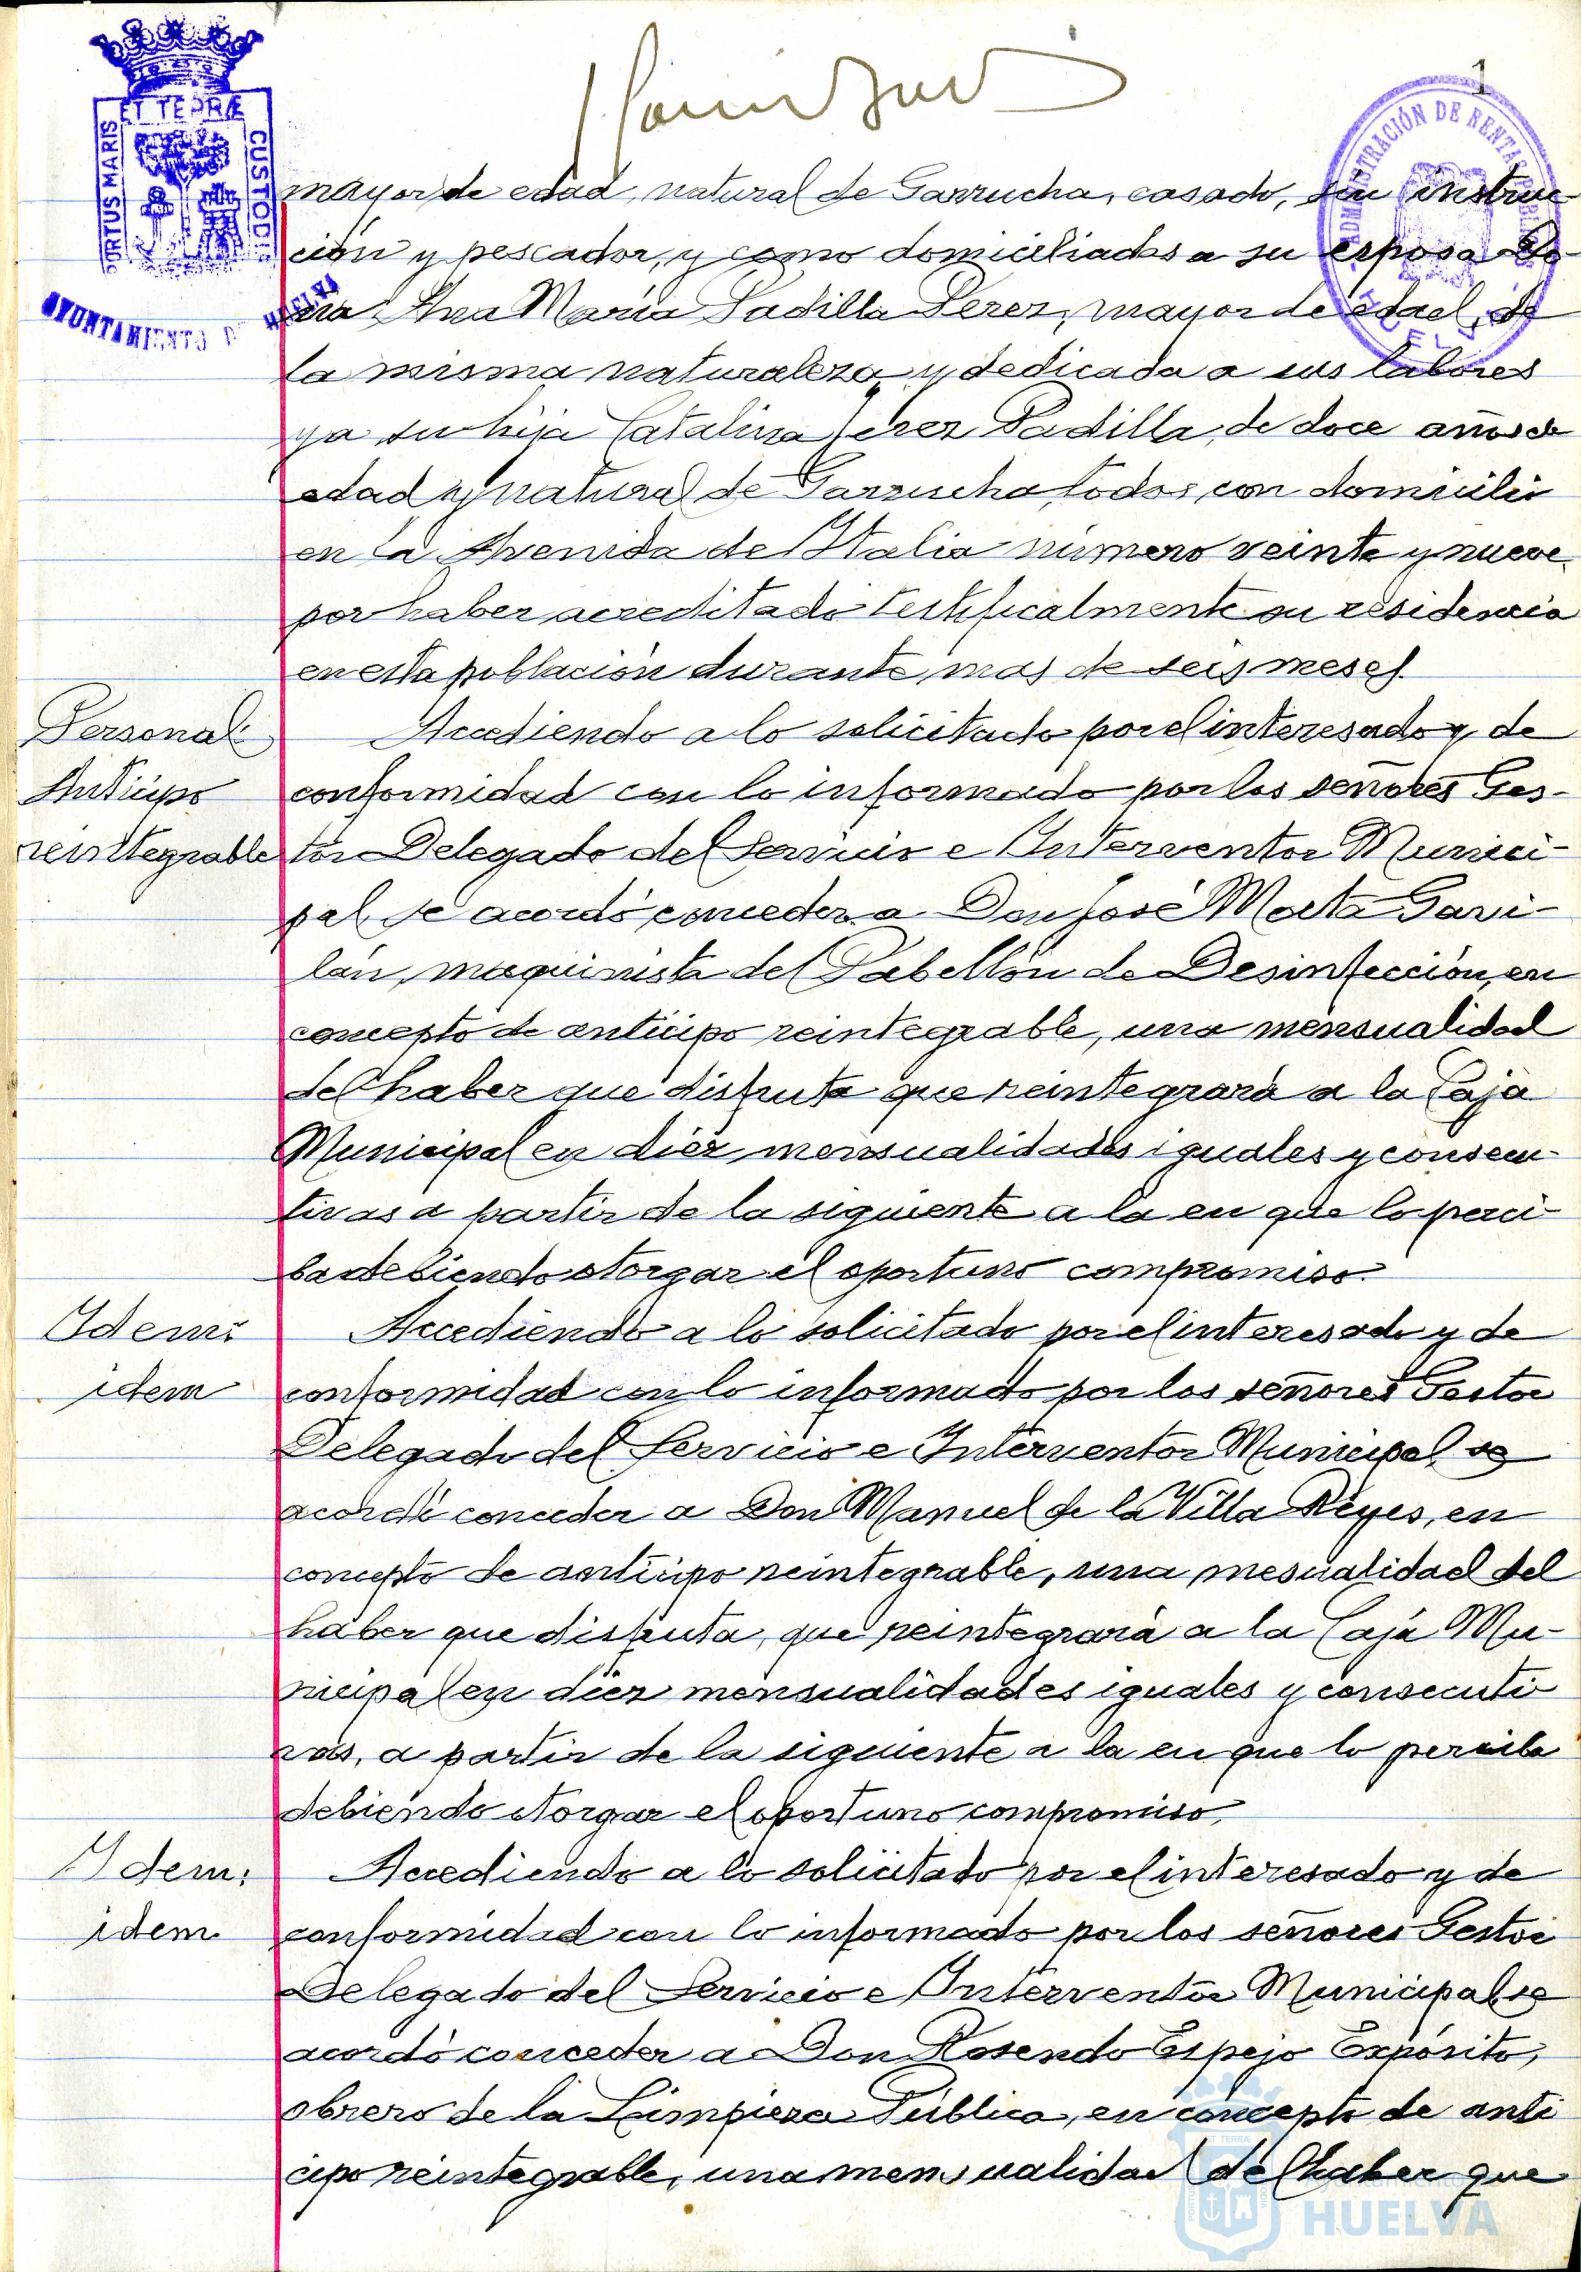 1
ET TERRÆ
PORTUS MARIS
CUSTODI
AYUNTAMIENTO DE HUELVA
ADMINISTRACIÓN DE RENTAS PÚBLICAS
HUELVA
mayor de edad, natural de Garrucha, casado, sin instruc-
ción y pescador, y como domiciliadas a su esposa Do-
ña Ana María Padilla Perez, mayor de edad, de
la misma naturaleza y dedicada a sus labores
y a su hija Catalina Perez Padilla, de doce años de
edad y natural de Garrucha, todos con domicilio
en la Avenida de Italia número veinte y nueve,
por haber acreditado testificalmente su residencia
en esta población durante mas de seis meses.
Personal:
Anticipo
reintegrable
Accediendo a lo solicitado por el interesado y de
conformidad con lo informado por los señores Ges-
tor Delegado del Servicio e Interventor Munici-
pal se acordó conceder a Don José Mata Gavi-
lán, maquinista del Pabellón de Desinfección, en
concepto de anticipo reintegrable, una mensualidad
del haber que disfruta que reintegrará a la Caja
Municipal en diez mensualidades iguales y consecu-
tivas a partir de la siguiente a la en que lo perci-
ba debiendo otorgar el oportuno compromiso.
Idem:
idem
Accediendo a lo solicitado por el interesado y de
conformidad con lo informado por los señores Gestor
Delegado del Servicio e Interventor Municipal se
acordó conceder a Don Manuel de la Villa Reyes, en
concepto de anticipo reintegrable, una mesualidad del
haber que disfruta, que reintegrará a la Caja Mu-
nicipal en diez mensualidades iguales y consecuti
vas, a partir de la siguiente a la en que lo perciba
debiendo otorgar el oportuno compromiso.
Idem:
idem.
Accediendo a lo solicitado por el interesado y de
conformidad con lo informado por los señores Gestor
Delegado del Servicio e Interventor Municipal se
acordó conceder a Don Rosendo Espejo Expósito,
obrero de la Limpieza Pública, en concepto de anti
cipo reintegrable, una mensualidad del haber que
HUELVA